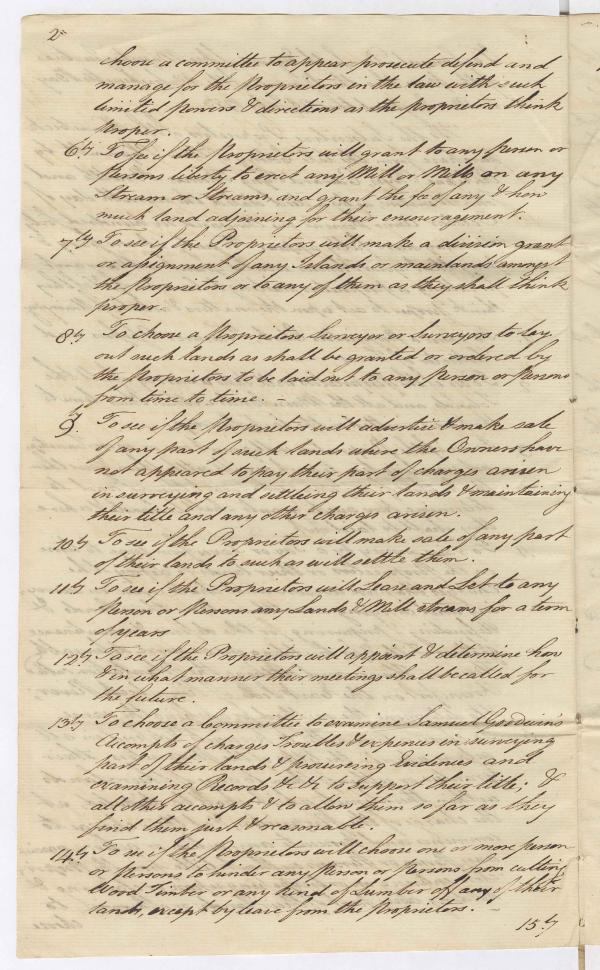 2
choose a committee to appear prosecute defend and
manage for the Proprietors in the law with such
limited powers & directions as the proprietors think
proper.
6ly To see if the Proprietors will grant to any person or
Persons liberty to erect any Mill or Mills on any
Stream or Streams, and grant the fee of any & how
much land adjoining for their encouragement.
7ly To see if the Proprietors will make a division grant
or assignment of any Islands or mainlands amongst
the Proprietors or to any of them as they shall think
proper.
8ly To choose a Proprietors Surveyor or Surveyors to lay
out such lands as shall be granted or ordered by
the Proprietors to be laid out to any person or Persons
from time to time. –
9ly To see if the Proprietors will advertise & make sale
of any part of such lands where the Owners have
not appeared to pay their part of charges arisen
in surveying and settleing their lands & maintaining
their title and any other charges arisen.
10ly To see if the Proprietors will make sale of any part
of their lands to such as will settle them.
11ly To see if the Proprietors will Lease and Let to any
Person or Persons any Lands & Mill streams for a term
of years
12ly To see if the Proprietors will appoint & determine how
& in what manner their meetings shall be called for
the future.
13ly To choose a Committee to examine Samuel Goodwin's
Accompts of charges Troubles & expences in surveying
part of their lands & procureing Evidences and
examining Records &c &c to support their title; &
all other accompts & to allow them so far as they
find them just & reasonable.
14ly To see if the Proprietors will choose one or more person
or persons to hinder any Person or Persons from cutting
Wood Timber or any kind of Lumber off any of their
lands, except by leave from the Proprietors. –
15ly